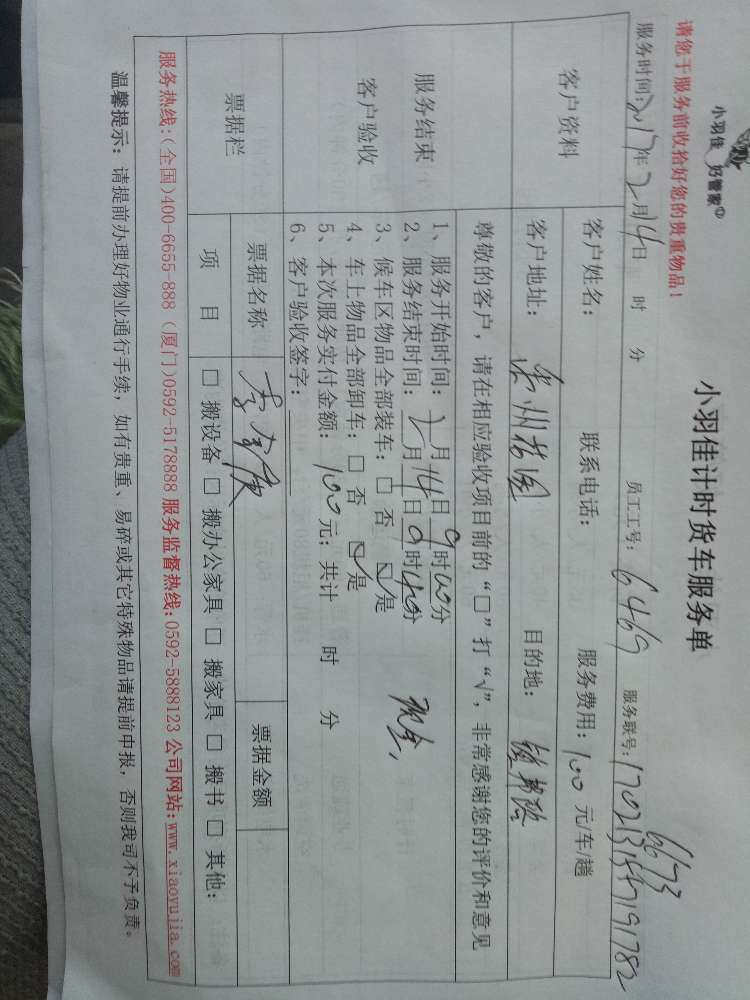 小羽佳 好管家
小羽佳计时货车服务单
请您于服务前收拾好您的贵重物品!
服务时间:2017年2月14日 时 分 员工工号: 6469 服务联号:
6673
客户资料
客户姓名: 联系电话: 服务费用: 100 元/车/趟
客户地址: 目的地:
服务结束
客户验收
尊敬的客户,请在相应验收项目前的“□”打“√”,非常感谢您的评价和意见
1、服务开始时间: 2月14日9时00分
2、服务结束时间: 月 日9时40分
现金
3、候车区物品全部装车: □ 否 ☑是
4、车上物品全部卸车: □ 否 ☑是
5、本次服务实付金额: 100元; 共计 时 分
6、客户验收签字:
票据栏
票据名称 票据金额
项 目 □ 搬设备 □ 搬办公家具 □ 搬家具 □ 搬书 □ 其他:
服务热线:(全国)400-6655-888 (厦门)0592-5178888 服务监督热线:0592-5888123 公司网站:www.xiaoyujia.com
温馨提示: 请提前办理好物业通行手续, 如有贵重、易碎或其它特殊物品请提前申报, 否则我司不予负责。